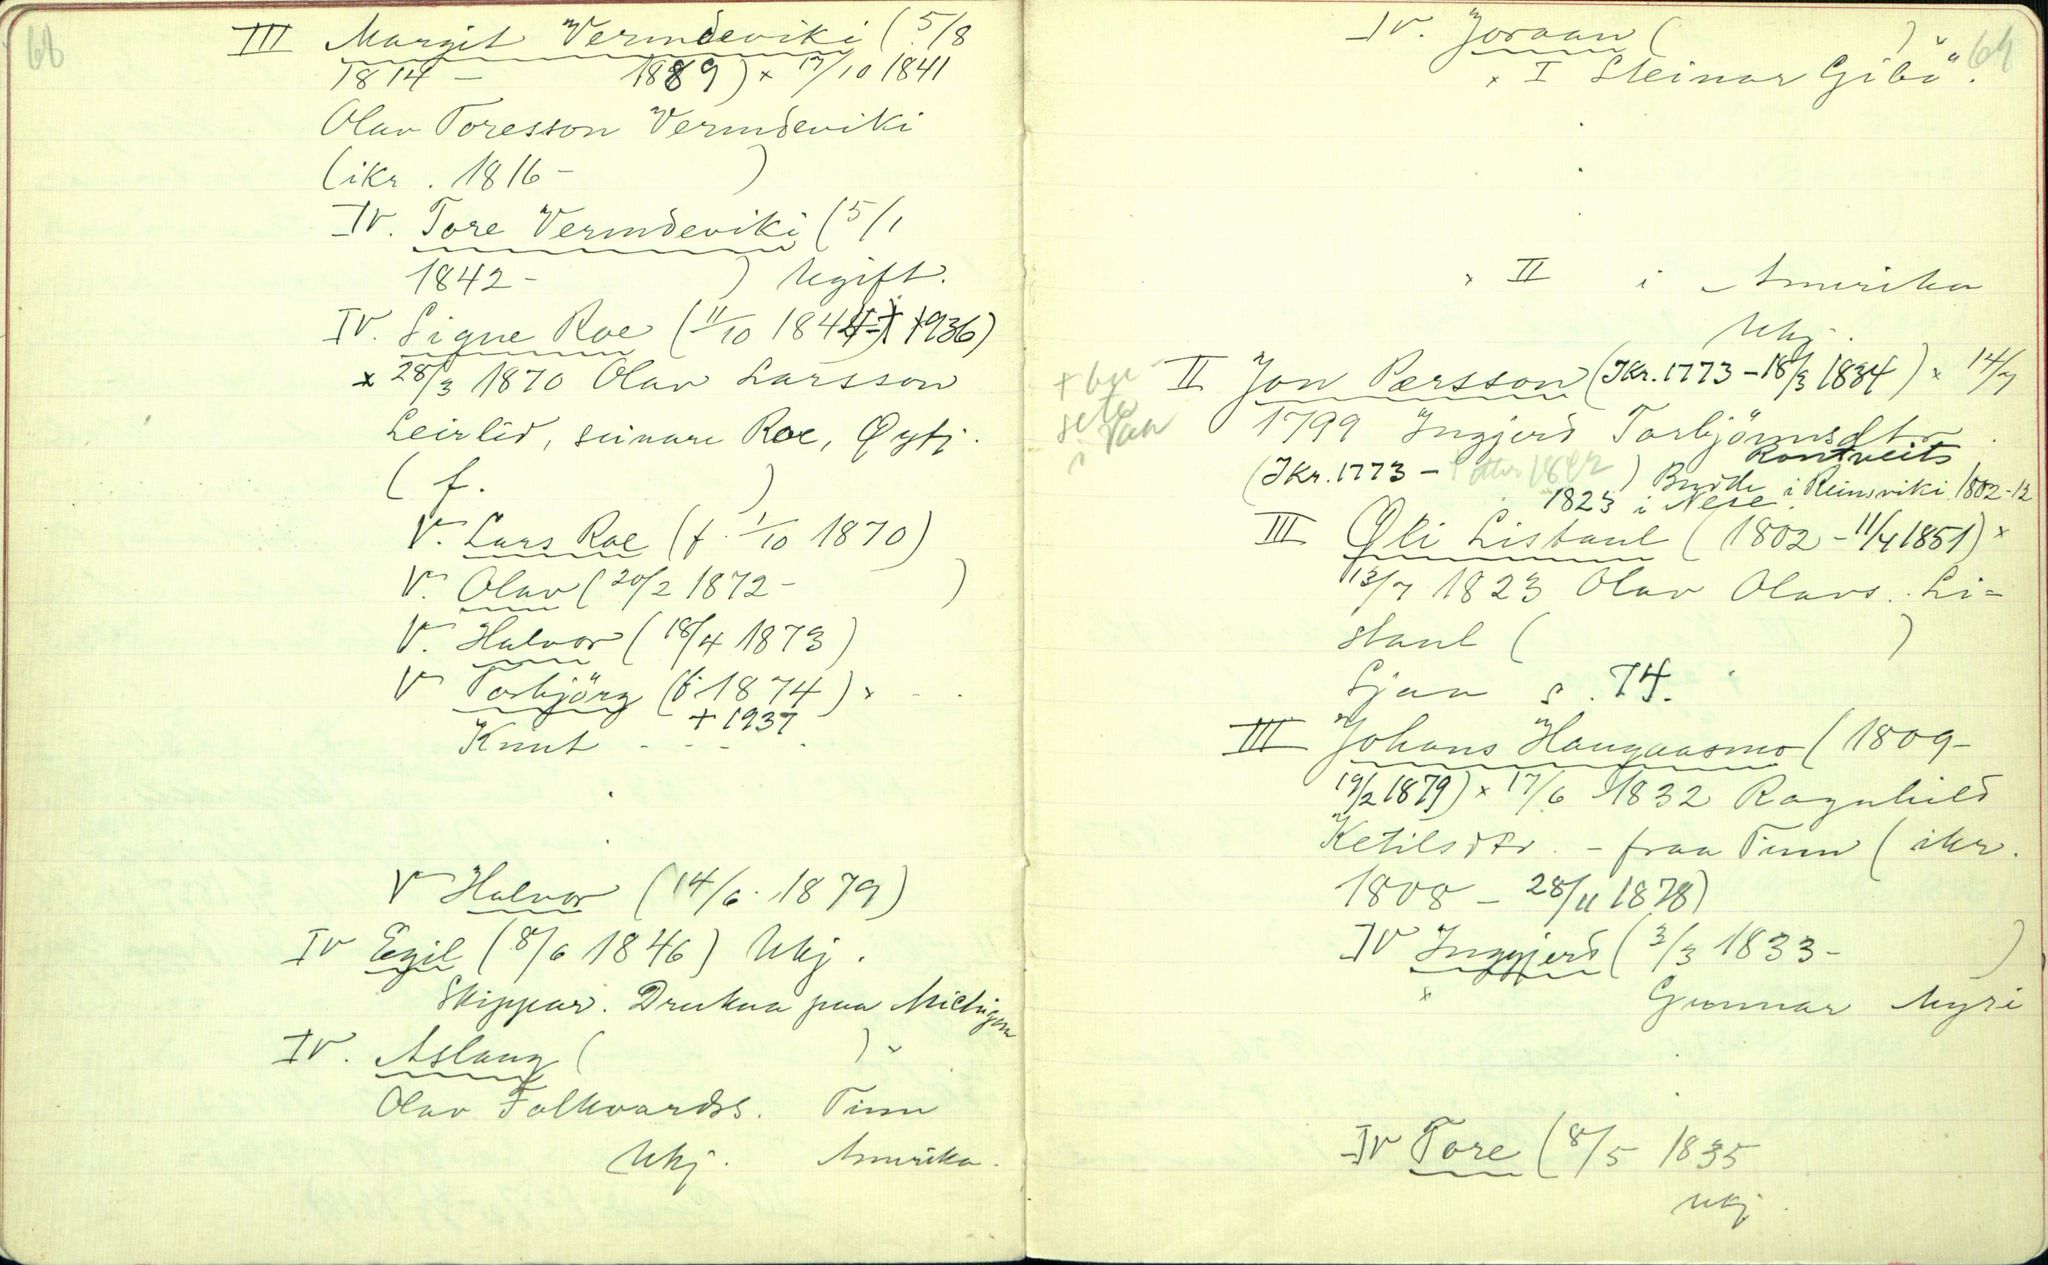 68
III Margit Vermdeviki (5/8
1814 – 1889) × 17/10 1841
Olav Toresson Vermdeviki
(ikr. 1816 – )
IV. Tore Vermdeviki (5/1
1842 – ) Ugift.
IV. Signe Roe (11/10 1844 † 1936)
× 28/3 1870 Olav Larsson
Leirlid, seinare Roe, Øyfj.
( f. )
V. Lars Roe (f. 1/10 1870)
V. Olav (20/2 1872 – )
V. Halvor (18/4 1873)
V Torbjörg (f. 1874) × - .
+ 1937
Knut - - - .
V Halvor (14/6. 1879)
IV Egil (8/6 1846) Ukj.
Skippar. Drukna paa Michigan
IV. Aslaug ( ) ×
Olav Folkvardss. Tinn
Ukj. Amerika.
IV. Joraan ( ) ×
× I Steinar Gibö.
× II i Amerika
Ukj.
II Jon Pærsson (Ikr. 1773 – 18/3 1834) × 14/7
1799 Ingjerd Torbjörnsdtr.
Rontveits
(Ikr. 1773 – ) Budde i Reinsviki 1802-12
1823 i Nese.
III Øli Listaul (1802 – 11/4 1851) ×
13/7 1823 Olav Olavs. Li=
staul ( )
Sjaa s. 74.
III Johans Haugaasmo (1809 –
19/2 1879) × 17/6 1832 Ragnhild
Ketilsdtr. – fraa Tinn (ikr.
1808 – 28/11 1878)
IV Inggjerd (3/3 1833 – )
× Gunnar Myri
IV Tore (8/5 1835
Ukj.